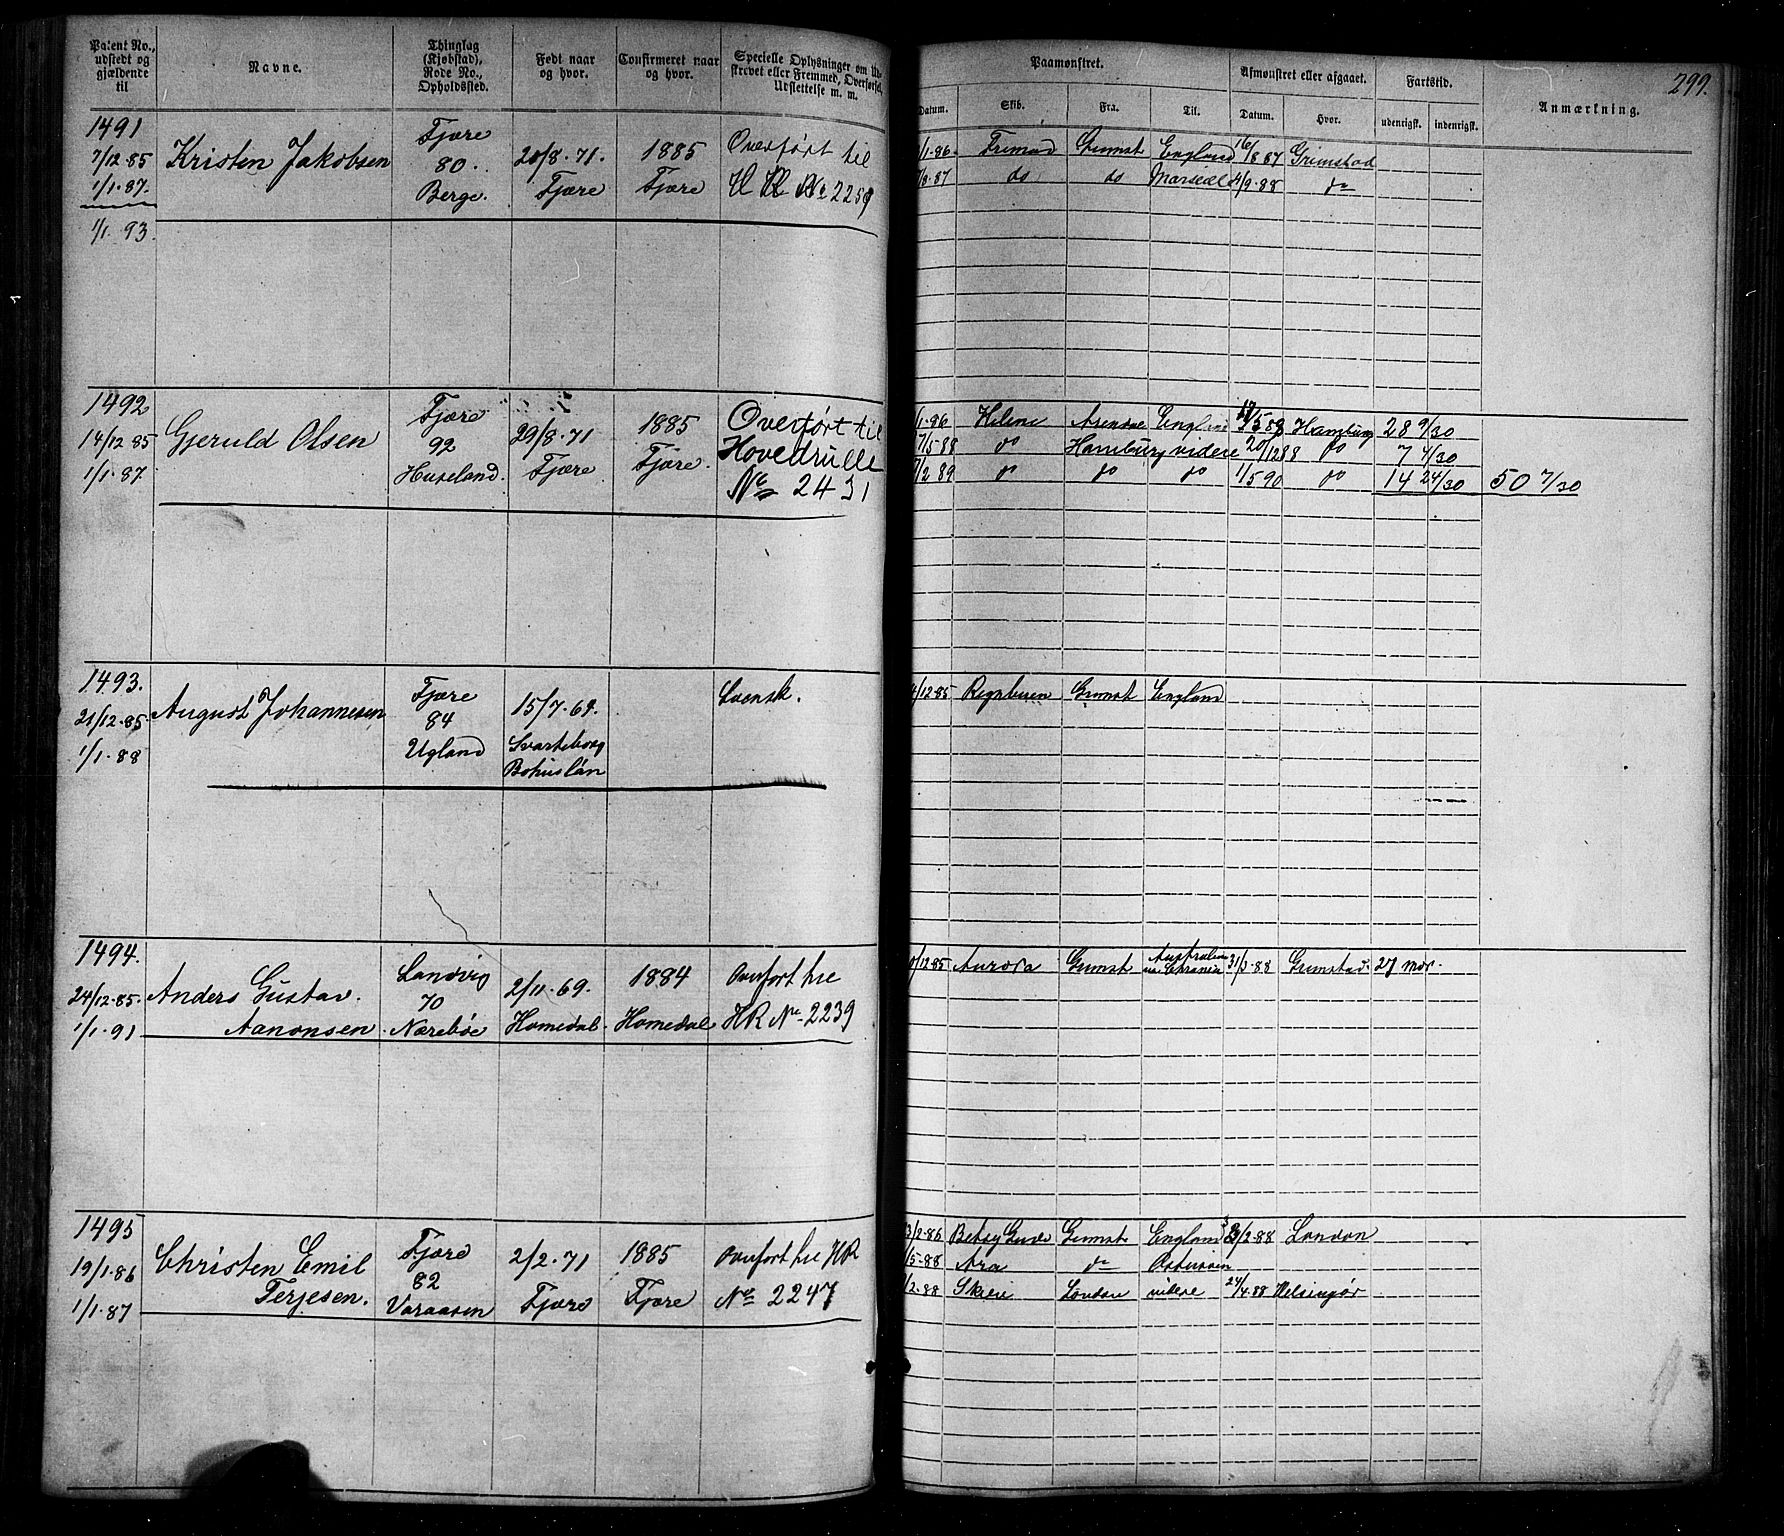 Patent No., udstedt og gjældende til
Navne.
Thinglag (Kjøbstad), Rode No., Opholdssted.
Født naar og hvor.
Confirmeret naar og hvor.
Specielle Oplysninger om Ud-
skrevet eller Fremmed, Overførsel,
Udslettelse m. m.
Paamønstret.
Afmønstret eller afgaaet.
Fartstid.
299.
Datum.
Skib.
Fra.
Til.
Datum.
Hvor.
udenrigsk.
indenrigsk.
Anmærkning.
1491
7/12.85
1/1.87.
1/1 93.
Kristen Jakobsen
Fjære
80.
Berge.
20/8.71.
Fjære
1885
Fjære
Overført til
H R No 2259
/1.86. Grimst England 16/8 87 Grimstad
/8.87 do do 4/9.88 do
1492
14/12 85
1/1.87.
Gjeruld Olsen
Fjære
92
Huseland.
29/8.71
Fjære
1885
Fjære.
Overført til
Hovedrulle
No 2431
/1.86 Helene England Hamburg 28 9/30
7/5.88 do Hamburg videre 20/12 88 do 7 4/30
7/2 89 do do do 1/5 90 do 14 24/30 50 7/30
1493.
21/12.85.
1/1.88
August Johannesen
Fjære
84
Ugland
15/7.69.
Svarteborg
Bohuslän
Svensk.
4/12 85 Regnbuen Grimst England
1494.
24/12.85.
1/1.91
Anders Gustav.
Aanonsen
Landvig
70
Nærebøe
2/11.69.
Homedal.
1884
Homedal
Overført til
HR No 2239
/12.85 Aurora Grimst Australien 31/3.88 Grimstad. 27 mdr.
1495
19/1.86
1/1.87
Christen Emil
Terjesen.
Fjære
82
Varaasen
2/2.71
Fjære
1885
Fjære
Overført til HR
No 2247
3/2.86 Betsy Gude Grimst England /2.88 London
/5.88 Ara do
/2.88 London videre 24/4.88 Helsingør